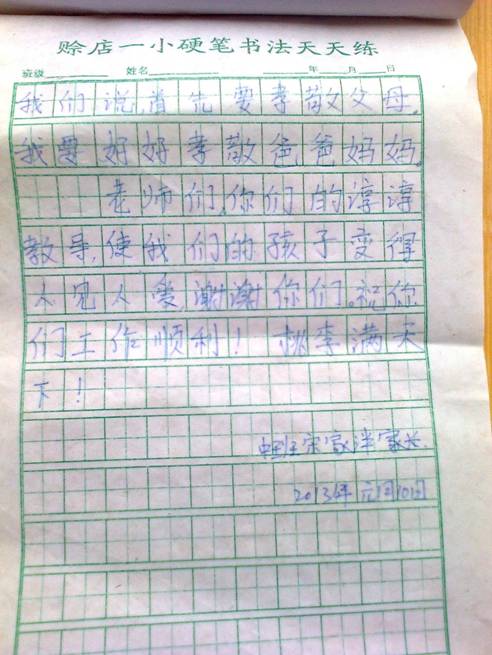 赊店一小硬笔书法天天练
班级 姓名 年 月 日
我们说,首先要孝敬父母,
我要好好孝敬爸爸妈妈。
老师们,你们的谆谆
教导,使我们的孩子变得
人见人爱,谢谢你们。祝你
们工作顺利！桃李满天
下！
中班宋家洋家长
2013年元月10日